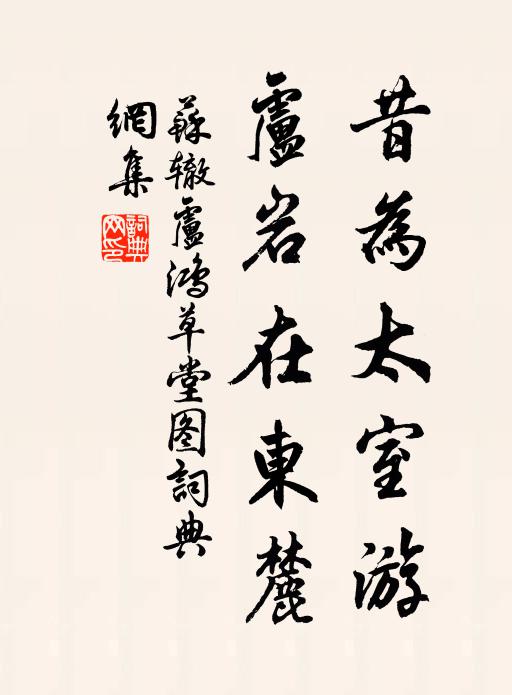 昔為太室游
盧岩在東麓
蘇辙盧鴻草堂图詞典
網集
詞典
网印